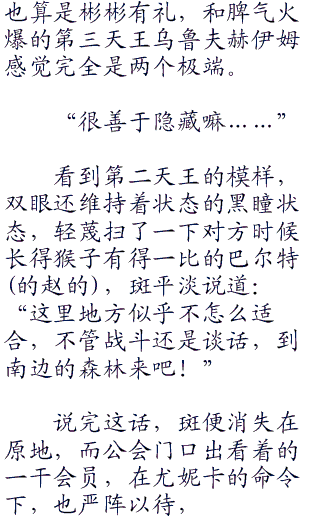 也算是彬彬有礼，和脾气火
爆的第三天王乌鲁夫赫伊姆
感觉完全是两个极端。
“很善于隐藏嘛……”
看到第二天王的模样，
双眼还维持着状态的黑瞳状
态，轻蔑扫了一下对方时候
长得猴子有得一比的巴尔特
(的赵的)，斑平淡说道：
“这里地方似乎不怎么适
合，不管战斗还是谈话，到
南边的森林来吧！”
说完这话，斑便消失在
原地，而公会门口出看着的
一干会员，在尤妮卡的命令
下，也严阵以待，